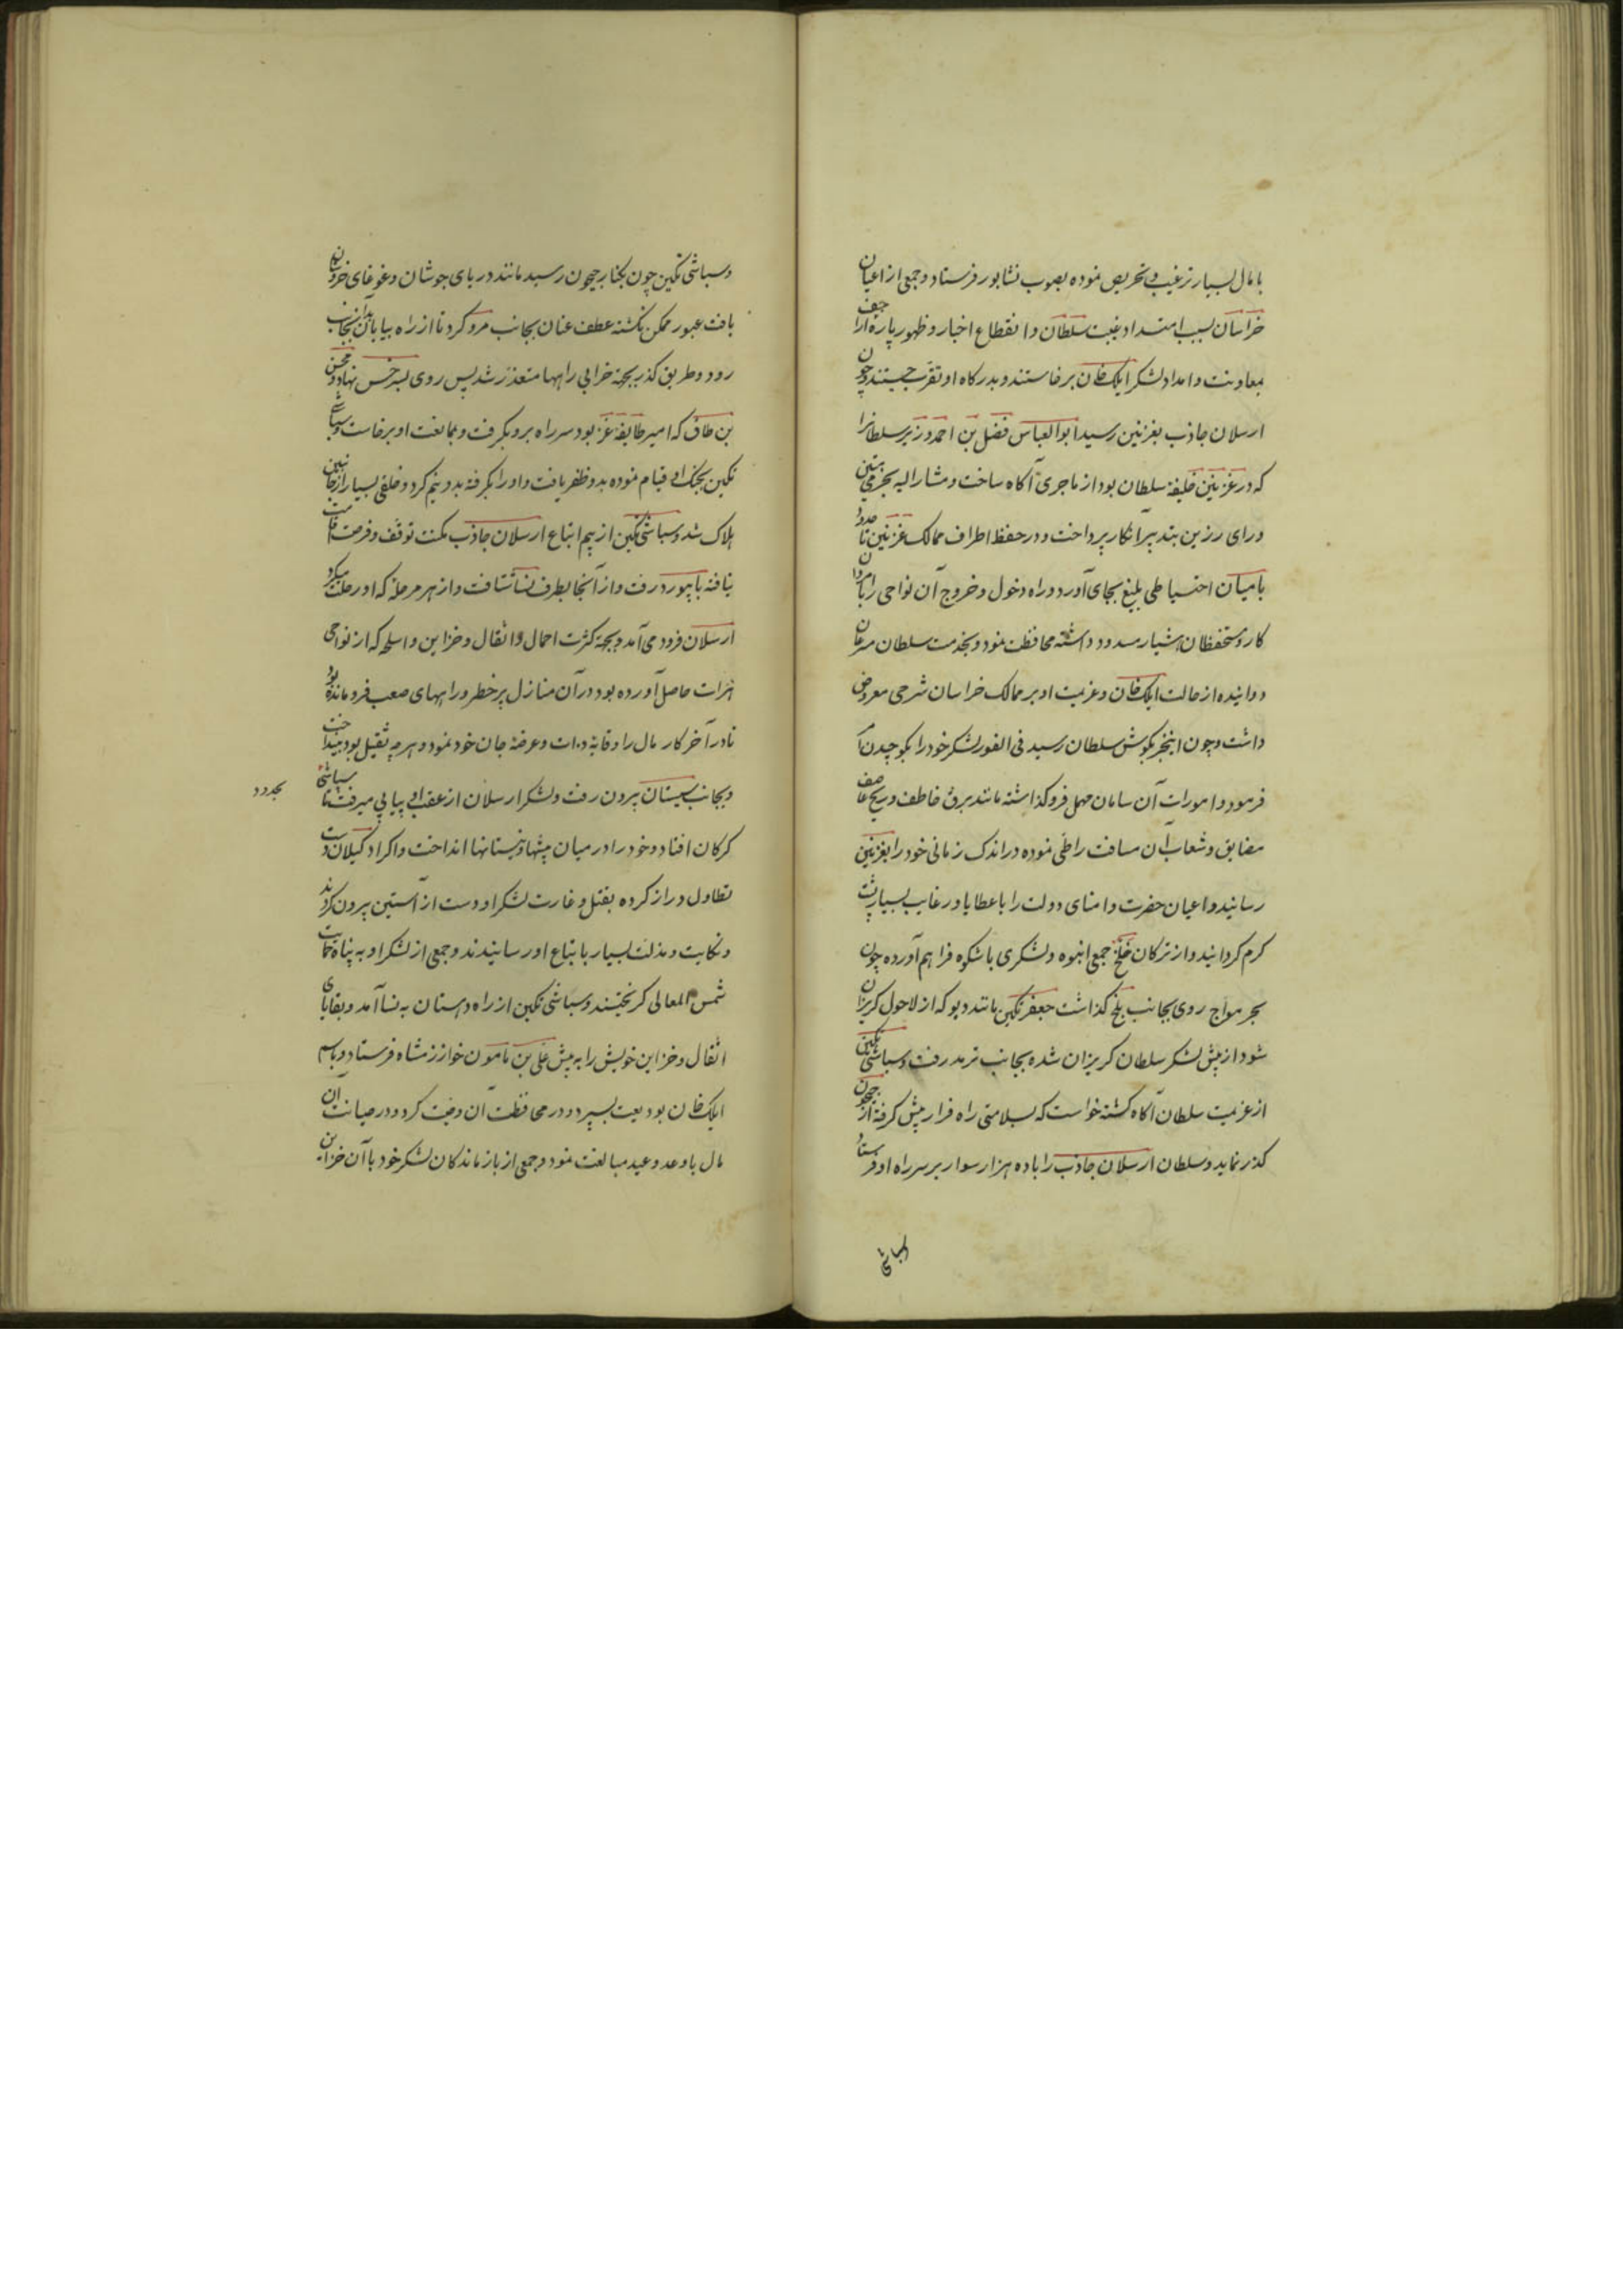 با مال بسیار ترغیب و تحریص نموده بصوب نشابور فرستاد و جمعی از اعیان
خراسان بسبب امتداد غیبت سلطان و انقطاع اخبار و ظهور پاره اراجیف
معاونت و امداد لشکر ایلک خان برخاستند و بدرکاه او تقرب جستند و چون
ارسلان جاذب بغزنین رسید ابوالعباس فضل بن احمد وزیر سلطانرا
که در غزنین خلیفهٔ سلطان بود از ماجری آکاه ساخت و مشار الیه بحزمی متین
و رای رزین بتدبیر آنکار پرداخت و در حفظ اطراف ممالک غزنین تا حدود
بامیان احتیاطی بلیغ بجای آورد و راه دخول و خروج آن نواحی را بامردان
کار و مستحفظان هشیار مسدود داشته محافظت نمود و بخدمت سلطان مسرعان
دوانیده از حالت ایلک خان و عزیمت او بر ممالک خراسان شرحی معروض
داشت و چون اینخبر بکوش سلطان رسید فی الفور لشکر خود را بکوچیدن
فرمود و امورات آن سامان مهمل فروکذاشته مانند برق خاطف و ریح عاصف
مضایق و شعاب آن مسافت را طی نموده در اندک زمانی خود را بغزنین
رسانید و اعیان حضرت و امنای دولت را با عطایا و رغایب بسیار پشت
کرم کردانید و از ترکان خلج جمعی انبوه و لشکری باشکوه فراهم آورده چون
بحر مواج روی بجانب بلخ کذاشت جعفر تکین مانند دیو که از لاحول کریزان
شود از پیش لشکر سلطان کریزان شده بجانب ترمد رفت و سباشی تکین
از عزیمت سلطان آکاه کشته خواست که بسلامتی راه فرار پیش کرفته از جیحون
کذر نماید و سلطان ارسلان جاذب را با ده هزار سوار بر سر راه او فرستاد
و سباشی تکین چون بکنار جیحون رسید مانند دریای جوشان و غوغای خروشان
یافت عبور ممکن نکشته عطف عنان بجانب مرو کرد تا از راه بیابان بدانجانب
رود و طریق کذر بجهة خرابی راهها متعذر شد پس روی بسرخس نهاد و محسن
بن طاق که امیر طایفهٔ غز بود سر راه برو بکرفت و بممانعت او برخاست و سباشی
تکین بجنک او قیام نموده بدو ظفر یافت و او را بکرفته بدو نیم کرد و خلقی بسیار از جانبین
هلاک شد و سباشی تکین از بیم اتباع ارسلان جاذب مکنت توقف و فرصت اقامت
نیافته بابیورد رفت و از آنجا بطرف نسا شتافت و از هر مرحله که او رحلت میکرد
ارسلان فرود می آمد و بجهة کثرت احمال و اثقال و خزاین و اسلحه که از نواحی
هرات حاصل آورده بود در آن منازل پر خطر و راههای صعب فرو مانده بود
تا در آخر کار مال را وقایهٔ ذات و عرضهٔ جان خود نمود و هرچه ثقیل بود بینداخت
و بجانب سیستان بیرون رفت و لشکر ارسلان از عقب او پیاپی میرفت تا سباشی
بجدود
کرکان افتاد و خود را در میان بیشها و نیستانها انداخت و اکراد کیلان دست
تطاول دراز کرده بقتل و غارت لشکر او دست از آستین بیرون کردند
و نکایت و مذلت بسیار باتباع او رسانیدند و جمعی از لشکر او به پناه حمایت
شمس المعالی کریختند و سباشی تکین از راه دهستان به نسا آمد و بقایای
اثقال و خزاین خویش را به پیش علی بن مامون خوارزمشاه فرستاد و باسم
ایلک خان بودیعت بسپرد و در محافظت آن وصیت کرد و در صیانت آن
مال با وعد و عید مبالغت نمود و جمعی از بازماندکان لشکر خود با آن خزاین